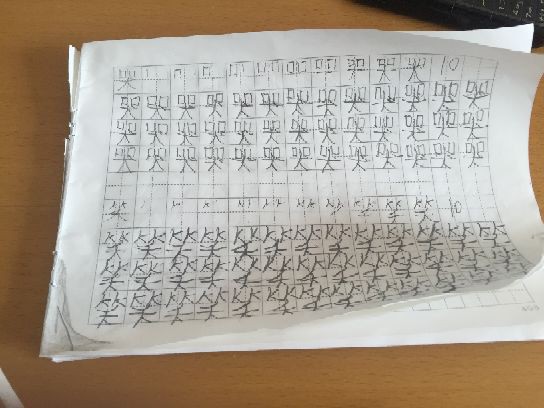 哭 丨 冂 口 吅 哭 10
哭 哭 哭 哭 哭 哭 哭 哭 哭 哭 哭 哭 哭
哭 哭 哭 哭 哭 哭 哭 哭 哭 哭 哭 哭 哭
哭 哭 哭 哭 哭 哭 哭 哭 哭 哭 哭 哭 哭
笑 笑 10
笑 笑 笑 笑 笑 笑 笑 笑 笑 笑 笑 笑 笑
笑 笑 笑 笑 笑 笑 笑 笑 笑 笑 笑 笑 笑
笑 笑 笑 笑 笑 笑 笑 笑 笑 笑 笑